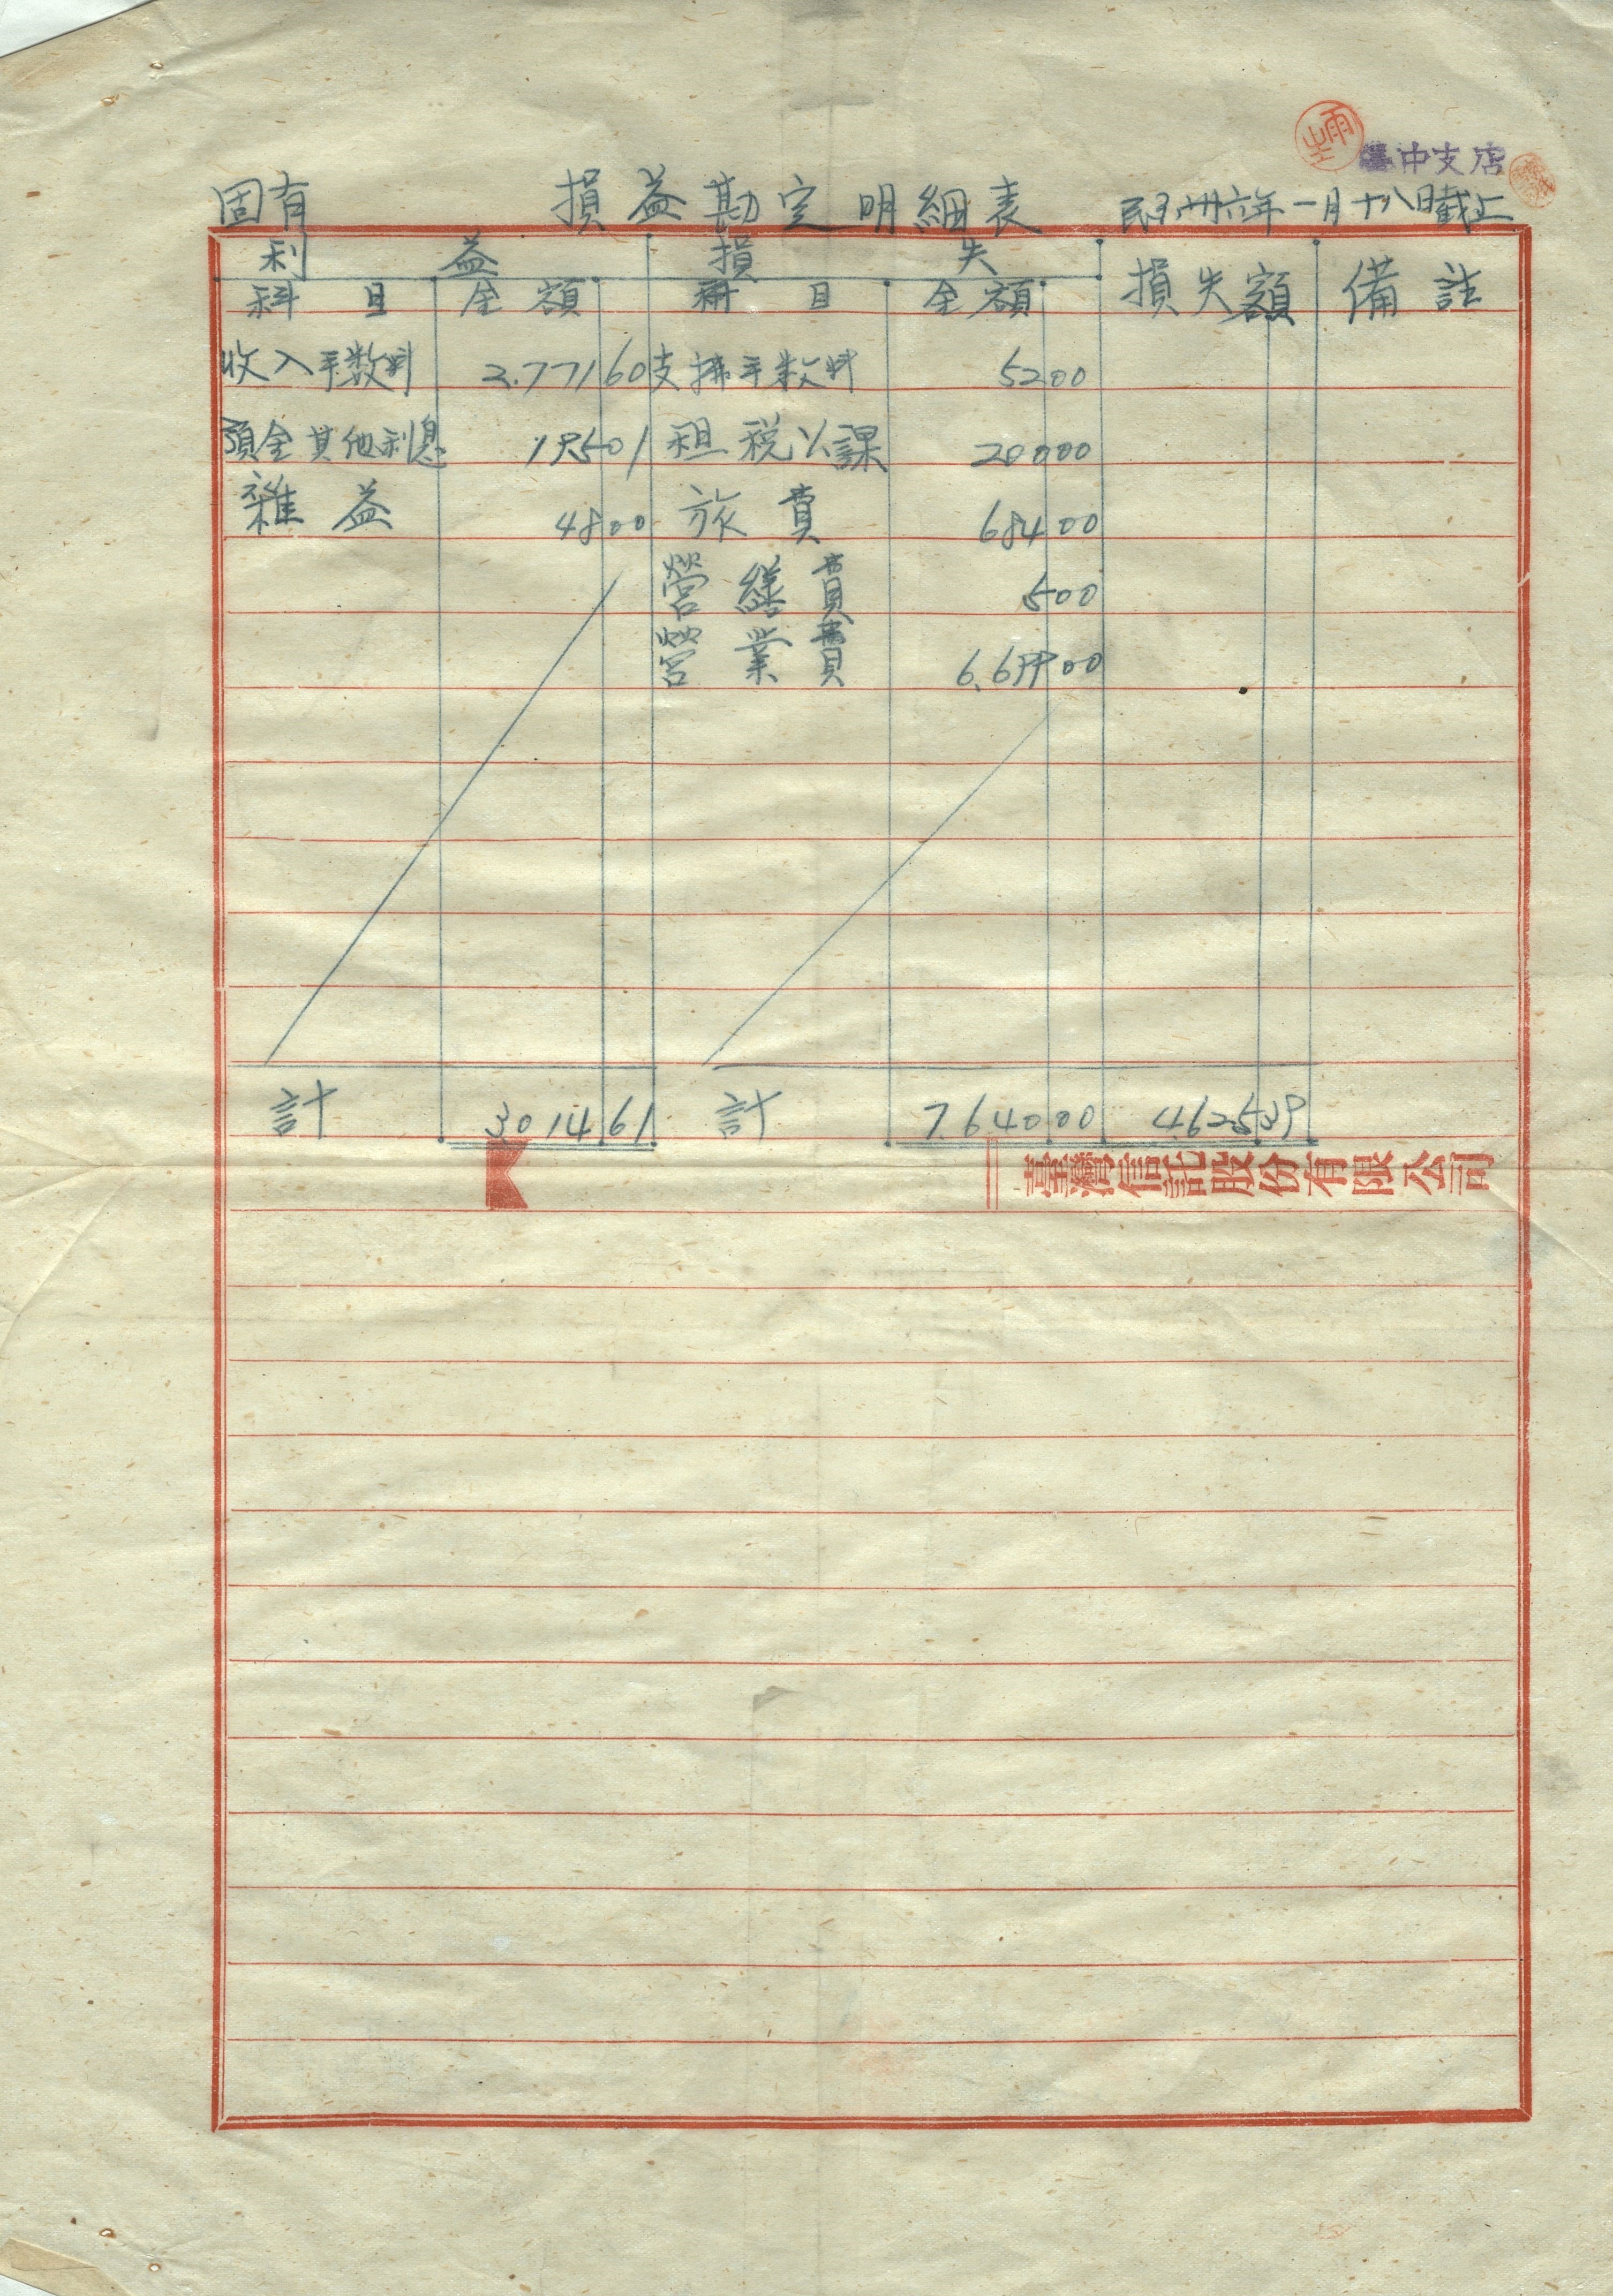 臺中支店
固有 損益勘定明細表 民国卅六年一月十八日截止
利益 損失 損失額 備註
科目 金額 科目 金額
收入手数料 2.771 60 支拂手数料 52 00
預金其他利息 195 01 租税公課 200 00
雜益 48 00 旅費 684 00
營繕費 5 00
營業費 6.699 00
計 3014 61 計 7.640 00 4.625 39
臺灣信託股份有限公司